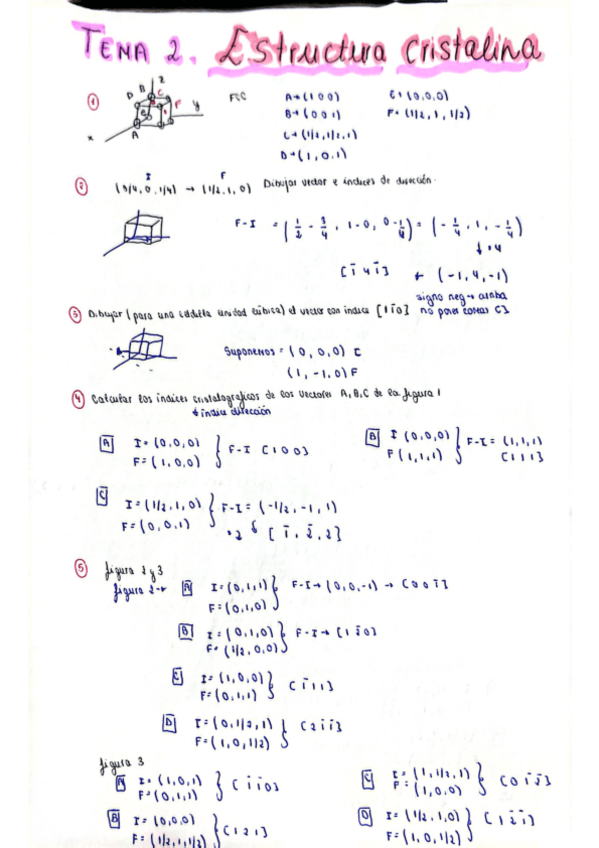 TEMA 2. Estructura cristalina
① z y x A B C D E F FCC A→(1 0 0) E→(0,0,0)
B→(0 0 1) F→(1/2, 1, 1/2)
C→(1/2,1/2,1)
D→(1,0,1)
I F
② (3/4, 0, 1/4) → (1/2, 1, 0) Dibujar vector e índices de dirección.
F-I = (1/2 - 3/4, 1-0, 0-1/4) = (-1/4, 1, -1/4)
↓·4
[1̄ 4 1̄] ← (-1,4,-1)
signo neg→ arriba
no poner comas [ ]
③ Dibujar (para una celdilla unidad cúbica) el vector con índice [1 1̄ 0]
Suponemos = (0,0,0) I
(1,-1,0) F
④ Calcular los índices cristalograficos de los vectores A,B,C de la figura 1
índice dirección
A I=(0,0,0) F=(1,0,0) } F-I [1 0 0]
B I(0,0,0) F(1,1,1) } F-I=(1,1,1) [1 1 1]
C I=(1/2,1,0) F=(0,0,1) } F-I=(-1/2,-1,1)
·2 [1̄, 2̄, 2]
⑤ figura 2 y 3
figura 2→ A I=(0,1,1) F=(0,1,0) } F-I→(0,0,-1)→[0 0 1̄]
B I=(0,1,0) F=(1/2,0,0) } F-I→[1 2̄ 0]
C I=(1,0,0) F=(0,1,1) } [1̄ 1 1]
D I=(0,1/2,1) F=(1,0,1/2) } [2 1̄ 1̄]
figura 3
A I=(1,0,1) F=(0,1,1) } [1̄ 1̄ 0]
C I=(1,1/2,1) F=(1,0,0) } [0 1̄ 2̄]
B I=(0,0,0) F=(1/2,1,1/2) } [1 2 1]
D I=(1/2,1,0) F=(1,0,1/2) } [1 2̄ 1]